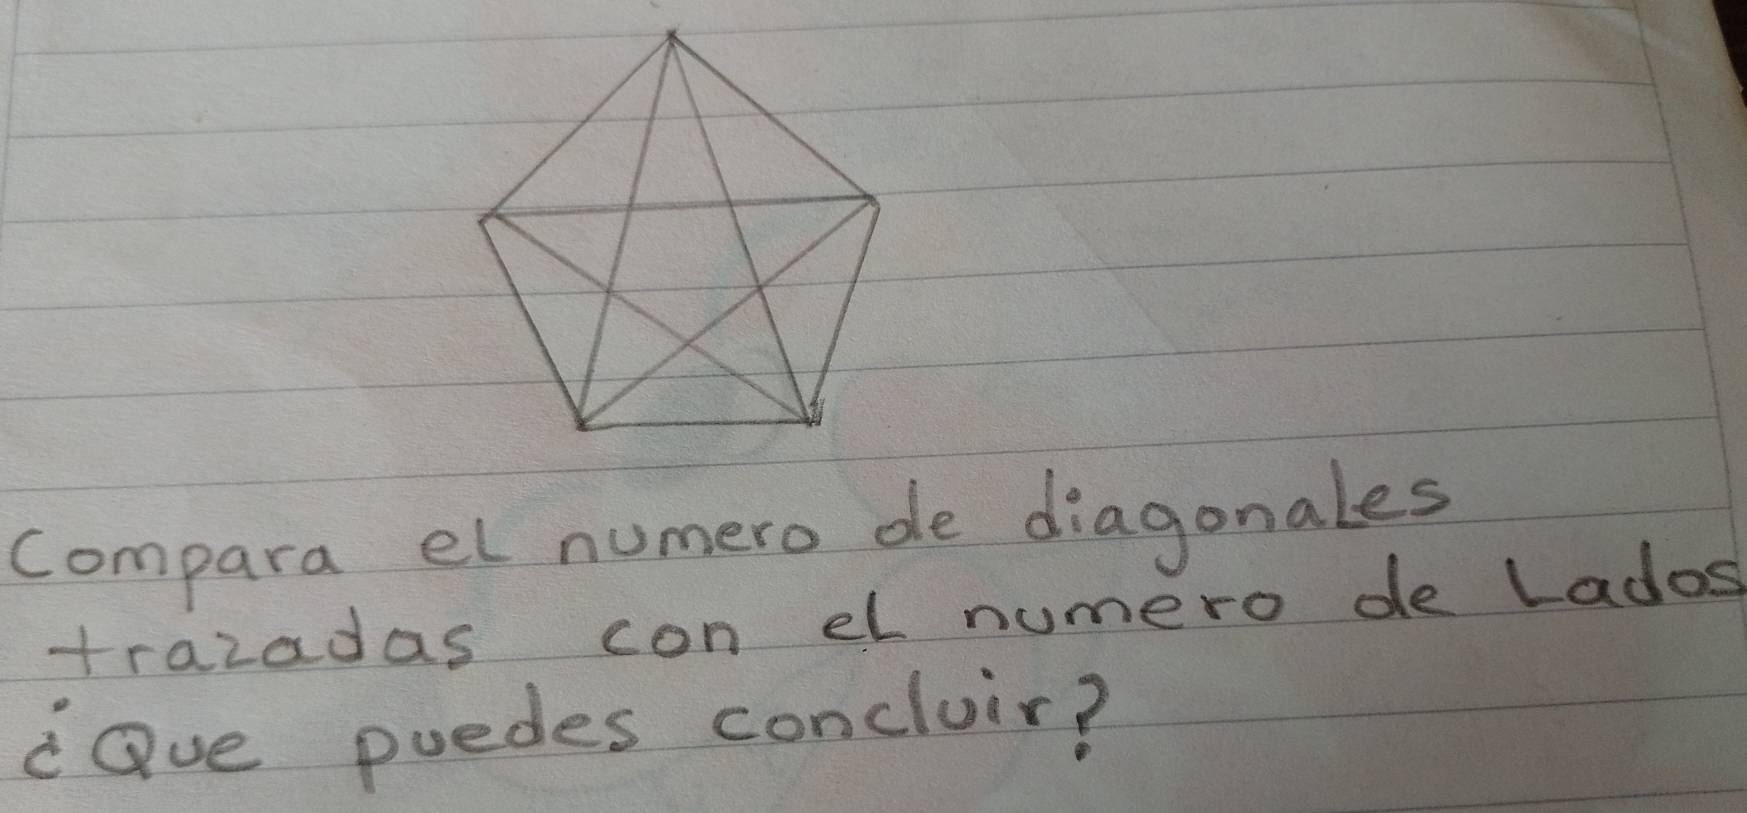 Compara el numero de diagonales
trazadas con el numero de Lados
¿Que puedes concluir?